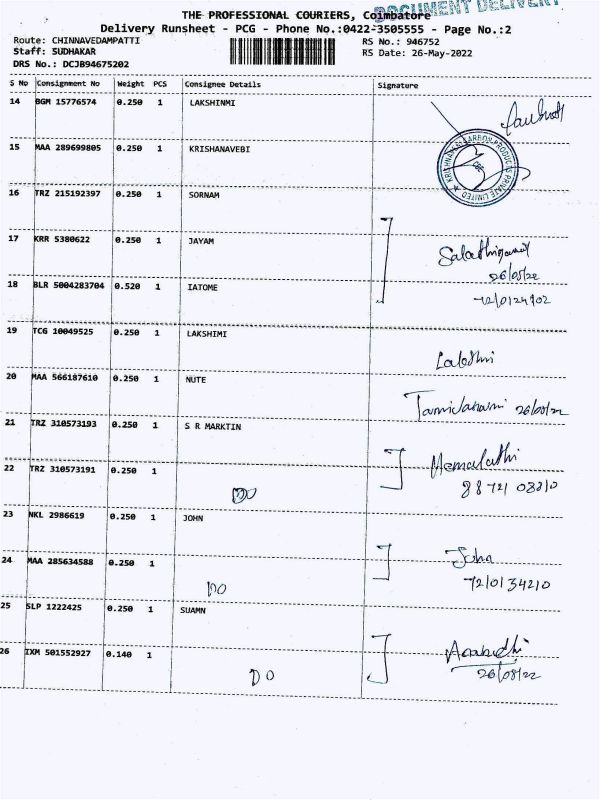 DOCUMENT DELIVERY
THE PROFESSIONAL COURIERS, Coimbatore
Delivery Runsheet - PCG - Phone No.:0422-3505555 - Page No.:2
Route: CHINNAVEDAMPATTI
RS No.: 946752
Staff: SUDHAKAR
RS Date: 26-May-2022
DRS No.: DCJB94675202
S No Consignment No Weight PCS Consignee Details Signature
14 BGM 15776574 0.250 1 LAKSHINMI
15 MAA 289699805 0.250 1 KRISHANAVEBI
16 TRZ 215192397 0.250 1 SORNAM
17 KRR 5380622 0.250 1 JAYAM
26/05/22
18 BLR 5004283704 0.520 1 IATOME
19 TCG 10049525 0.250 1 LAKSHIMI
20 MAA 566187610 0.250 1 NUTE
21 TRZ 310573193 0.250 1 S R MARKTIN
Hemalathi
22 TRZ 310573191 0.250 1
DO
23 NKL 2986619 0.250 1 JOHN
John
24 MAA 285634588 0.250 1
DO
7210134210
25 SLP 1222425 0.250 1 SUAMN
26 IXM 501552927 0.140 1
DO